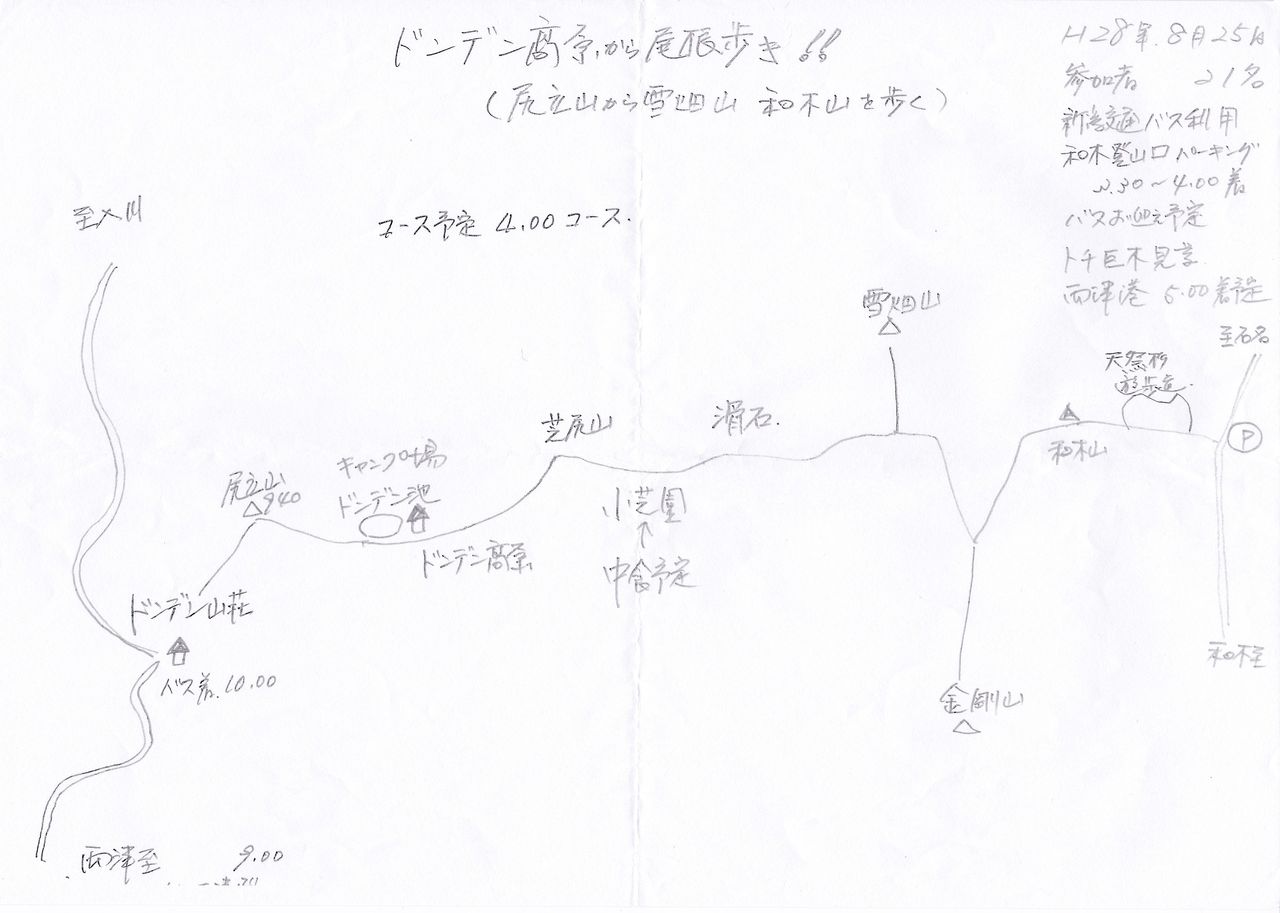 ドンデン高原から尾根歩き!!
(尻立山から雪畑山 和木山を歩く)
H28年.8月25日
参加者 21名
新潟交通バス利用
和木登山口パーキング
3.30〜4.00着
バスお迎え予定
トチ巨木見学
両津港 5.00着予定
至入川
コース予定 4.00コース.
雪畑山
至石名
天然杉
遊歩道.
芝尻山
滑石.
P
和木山
キャンプ場
尻立山
940
ドンデン池
小芝園
↑
ドンデン高原
中食予定
ドンデン山荘
和木至
バス着.10.00
金剛山
両津至 9.00